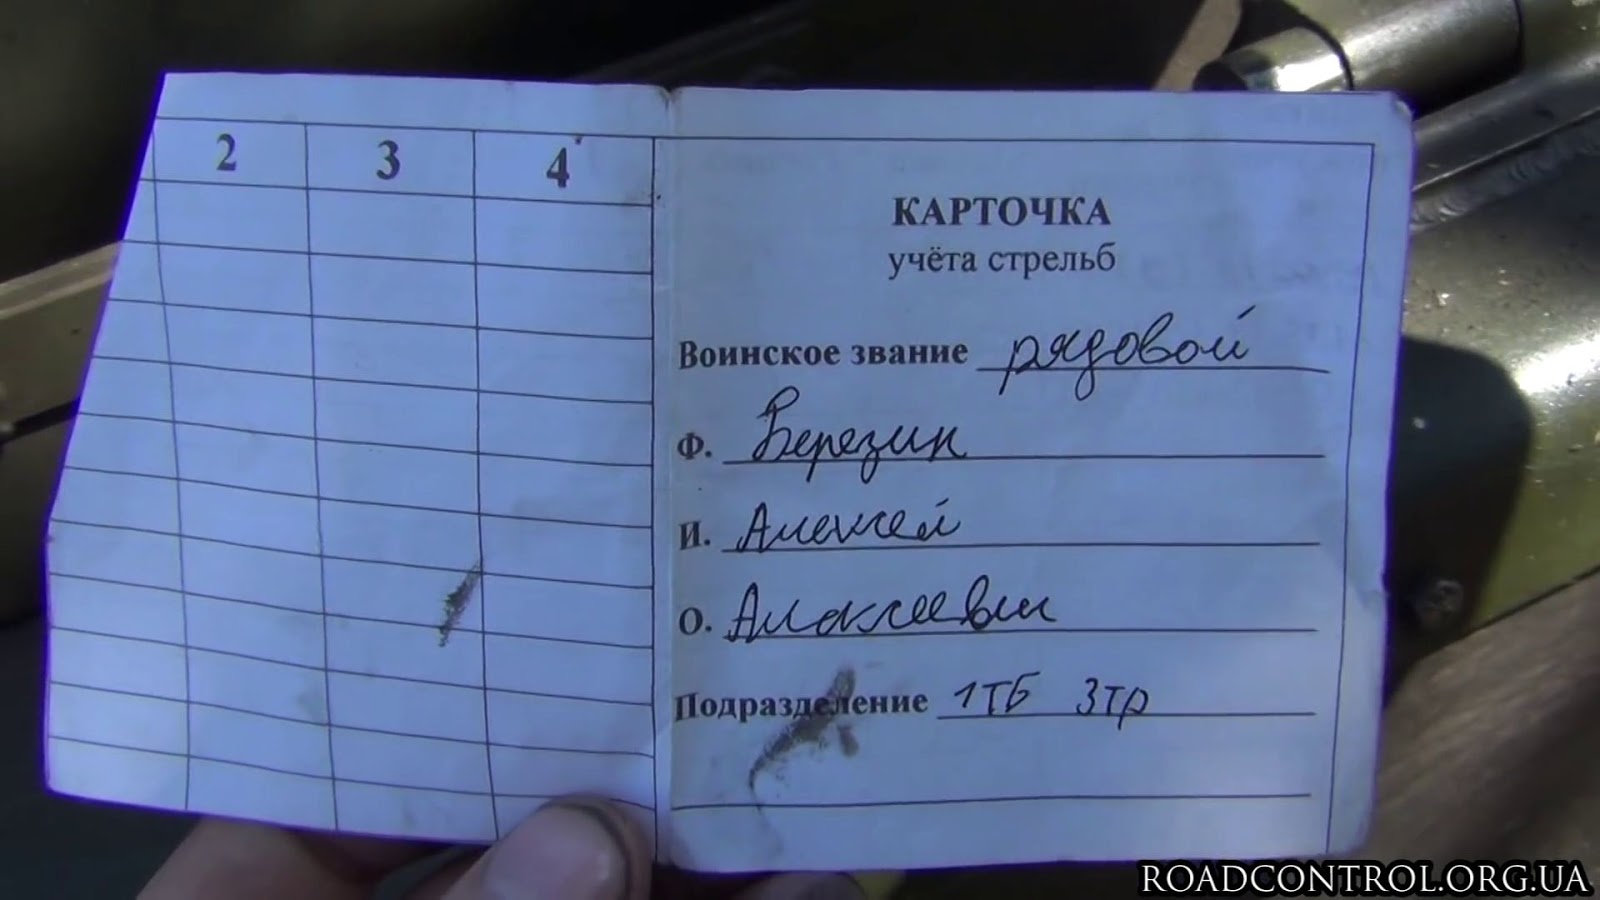 2 3 4
КАРТОЧКА
учёта стрельб
Воинское звание рядовой
Ф. Березин
И. Алексей
О. Алексеевич
Подразделение 1ТБ 3тр
ROADCONTROL.ORG.UA